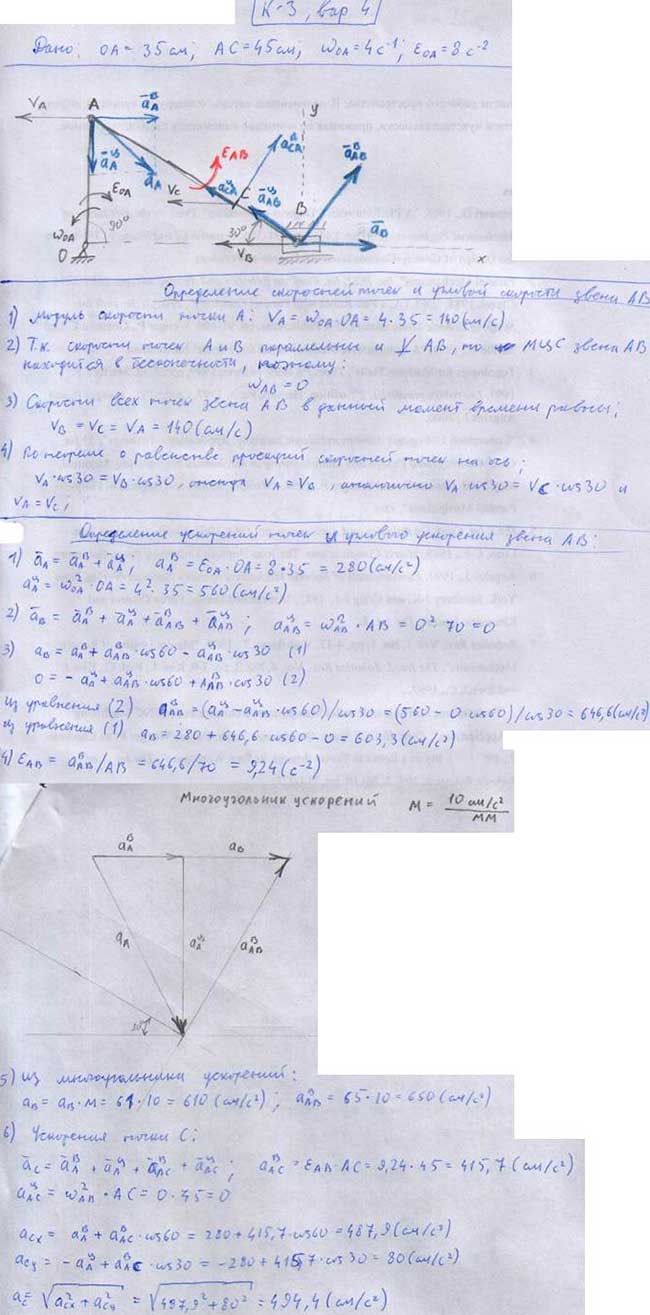 К-3, вар 4
Дано: OA = 35 см; AC = 45 см; ω_OA = 4 с⁻¹; ε_OA = 8 с⁻²
V_A
A
ā_A^в
y
ā_A^ц
ā_A
ε_AB
a_CA^в
a_CA^ц
ā_AB^в
V_C
C
ā_AB^ц
ε_OA
ω_OA
90°
30°
B
ā_B
O
V_B
x
Определение скоростей точек и угловой скорости звена AB
1) Модуль скорости точки A: V_A = ω_OA · OA = 4 · 35 = 140 (см/с)
2) Т.к. скорости точек A и B параллельны и AB, то МЦС звена AB
находится в бесконечности, поэтому:
ω_AB = 0
3) Скорости всех точек звена AB в данный момент времени равны;
V_B = V_C = V_A = 140 (см/с)
4) По теореме о равенстве проекций скоростей точек на ось;
V_A · cos30 = V_B · cos30, откуда V_A = V_B, аналогично V_A · cos30 = V_C · cos30 и
V_A = V_C;
Определение ускорений точек и углового ускорения звена AB:
1) ā_A = ā_A^в + ā_A^ц; a_A^в = ε_OA · OA = 8 · 35 = 280 (см/с²)
a_A^ц = ω_OA² · OA = 4² · 35 = 560 (см/с²)
2) ā_B = ā_A^в + ā_A^ц + ā_AB^в + ā_AB^ц; a_AB^ц = ω_AB² · AB = 0² · 70 = 0
3) a_B = a_A^в + a_AB^в cos60 - a_AB^ц cos30 (1)
0 = -a_A^ц + a_AB^ц · cos60 + a_AB^в · cos30 (2)
из уравнения (2) a_AB^в = (a_A^ц - a_AB^ц · cos60)/cos30 = (560 - 0 · cos60)/cos30 = 646,6 (см/с²)
из уравнения (1) a_B = 280 + 646,6 · cos60 - 0 = 603,3 (см/с²)
4) ε_AB = a_AB^в/AB = 646,6/70 = 9,24 (с⁻²)
Многоугольник ускорений M = 10 см/с² / мм
a_A^в
a_B
a_A
a_A^ц
a_AB^в
30°
5) из многоугольника ускорений:
a_B = a_B · M = 61 · 10 = 610 (см/с²); a_AB^в = 65 · 10 = 650 (см/с²)
6) Ускорения точки C:
ā_C = ā_A^в + ā_A^ц + ā_AC^в + ā_AC^ц; a_AC^в = ε_AB · AC = 9,24 · 45 = 415,7 (см/с²)
a_AC^ц = ω_AB² · AC = 0 · 45 = 0
a_Cx = a_A^в + a_AC^в · cos60 = 280 + 415,7 · cos60 = 487,9 (см/с²)
a_Cy = -a_A^ц + a_AC^в · cos30 = -280 + 415,7 · cos30 = 80 (см/с²)
a_C = √(a_Cx² + a_Cy²) = √(487,9² + 80²) = 494,4 (см/с²)